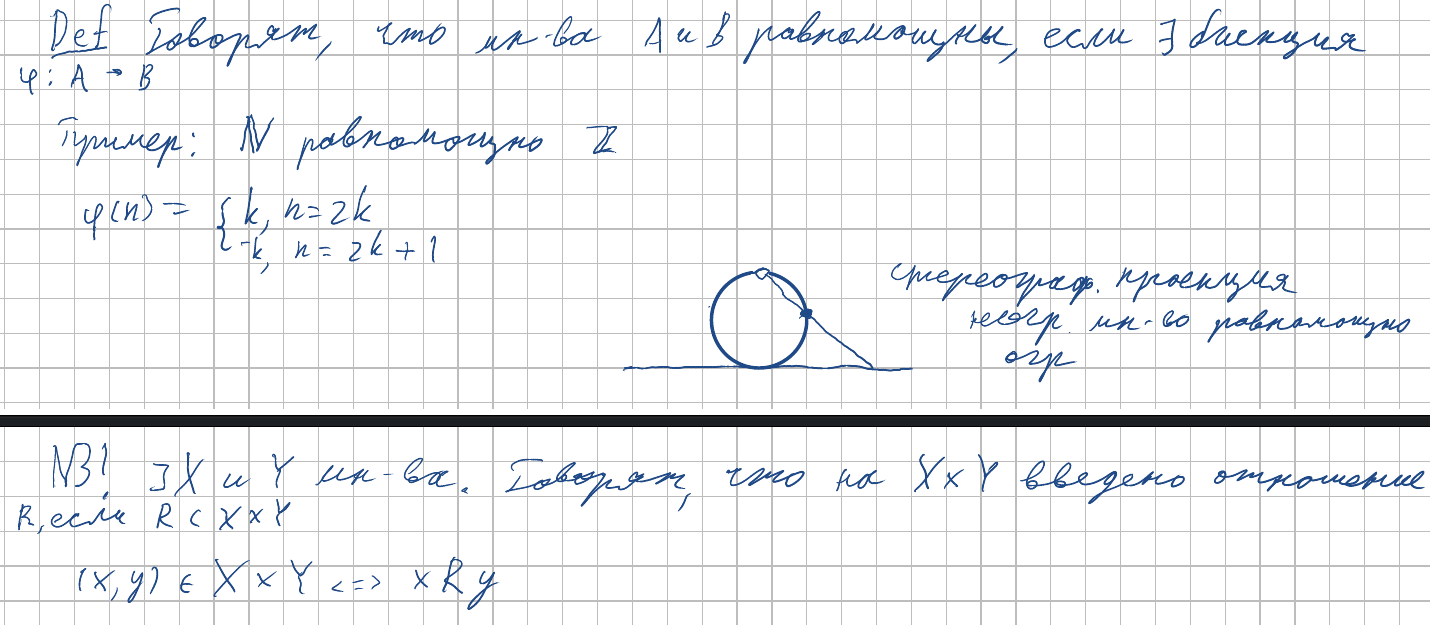 Def Говорят, что мн-ва A и B равномощны, если ∃ биекция
φ: A → B
Пример: ℕ равномощно ℤ
φ(n) = { k, n = 2k
-k, n = 2k + 1
стереограф. проекция
неогр. мн-во равномощно
огр
NB! ∃ X и Y мн-ва. Говорят, что на X×Y введено отношение
R, если R ⊂ X×Y
(x, y) ∈ X × Y <=> x R y